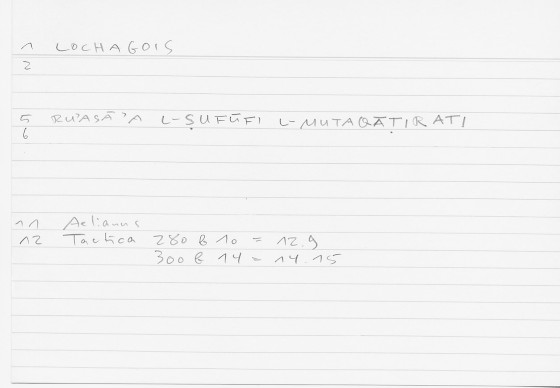 1 LOCHAGOIS
2
5 RUʾASĀʾA L-ṢUFŪFI L-MUTAQĀṬIRATI
6
11 Aelianus
12 Tactica 280 B 10 = 12.9
300 B 14 = 14.15